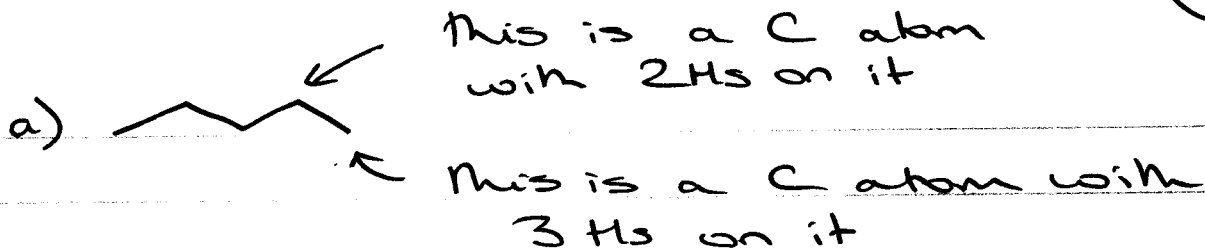 this is a C atom
with 2Hs on it
a)
this is a C atom with
3 Hs on it